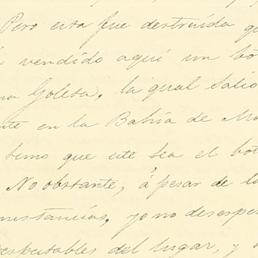 Pero esta fue destruida
vendido aqui un bo
na Goleta, la qual Salio
te en la Bahia de
temo que este sea el bot
No obstante, á pesar de la
cunstancias, yo no desesper
respetables del lugar, y